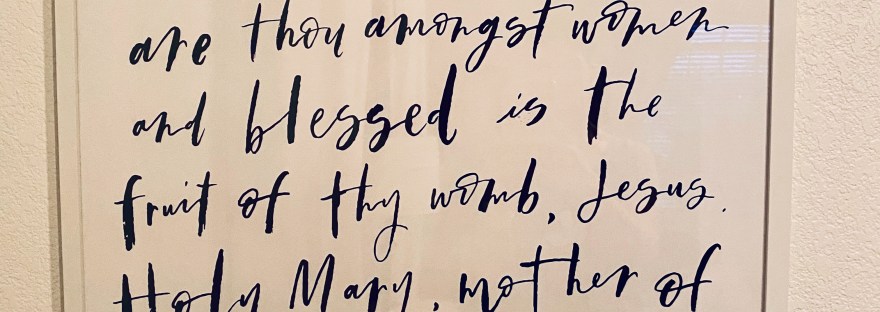 are thou amongst women
and blessed is the
fruit of thy womb, Jesus.
Holy Mary, mother of